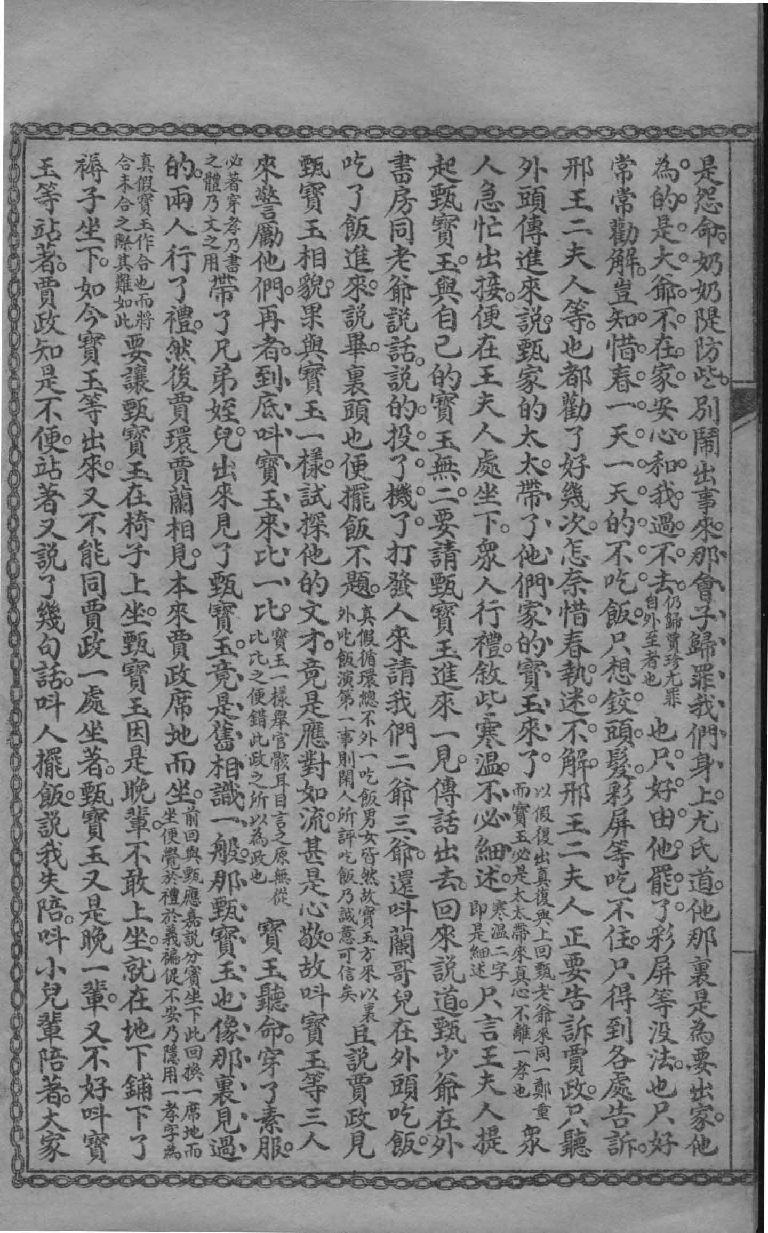 是怨命奶奶隄防些別鬧出事來那會子歸罪我們身上尤氏道他那裏是為要出家他
為的是大爺不在家安心和我過不去仍歸賈珍尤罪自外至者也也只好由他罷了彩屏等没法也只好
常常勸解豈知惜春一天一天的不吃飯只想鉸頭髮彩屏等吃不住只得到各處告訴
邢王二夫人等也都勸了好幾次怎奈惜春執迷不解邢王二夫人正要告訴賈政只聽
外頭傳進來說甄家的太太帶了他們家的寶玉來了以假復出真復與上回甄老爺來同一鄭重而寶玉必是太太帶來真心不離一孝也眾
人急忙出接便在王夫人處坐下眾人行禮敘些寒溫不必細述寒溫二字即是細述只言王夫人提
起甄寶玉與自己的寶玉無二要請甄寶玉進來一見傳話出去回來說道甄少爺在外
書房同老爺說話說的投了機了打發人來請我們二爺三爺還叫蘭哥兒在外頭吃飯
吃了飯進來說畢裏頭也便擺飯不題真假循環總不外一吃飯男女皆然故寶玉方來以裏外吃飯演第一事則閑人所評吃飯乃誠意可信矣且說賈政見
甄寶玉相貌果與寶玉一樣試探他的文才竟是應對如流甚是心敬故叫寶玉等三人
來警勵他們再者到底叫寶玉來比一比寶玉一樣舉官骸耳目言之原無從比比之便錯此政之所以為政也寶玉聽命穿了素服
必著穿孝乃書之體乃文之用帶了兄弟姪兒出來見了甄寶玉竟是舊相識一般那甄寶玉也像那裏見過
的兩人行了禮然後賈環賈蘭相見本來賈政席地而坐前回與甄應嘉說分賓坐下此回換一席地而坐便覺於禮於義褊促不安乃隱用一孝字為
真假寶玉作合也而將合未合之際其難如此要讓甄寶玉在椅子上坐甄寶玉因是晚輩不敢上坐就在地下鋪下了
褥子坐下如今寶玉等出來又不能同賈政一處坐著甄寶玉又是晚一輩又不好叫寶
玉等站著賈政知是不便站著又說了幾句話叫人擺飯說我失陪叫小兒輩陪著大家